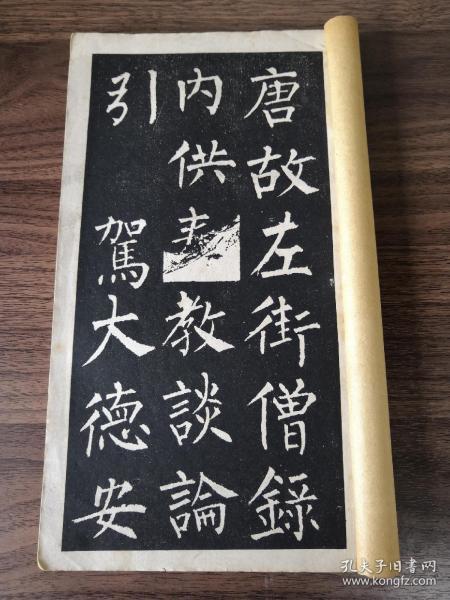 唐故左街僧錄
内供三教談論
引駕大德安
孔夫子旧书网
www.kongfz.com